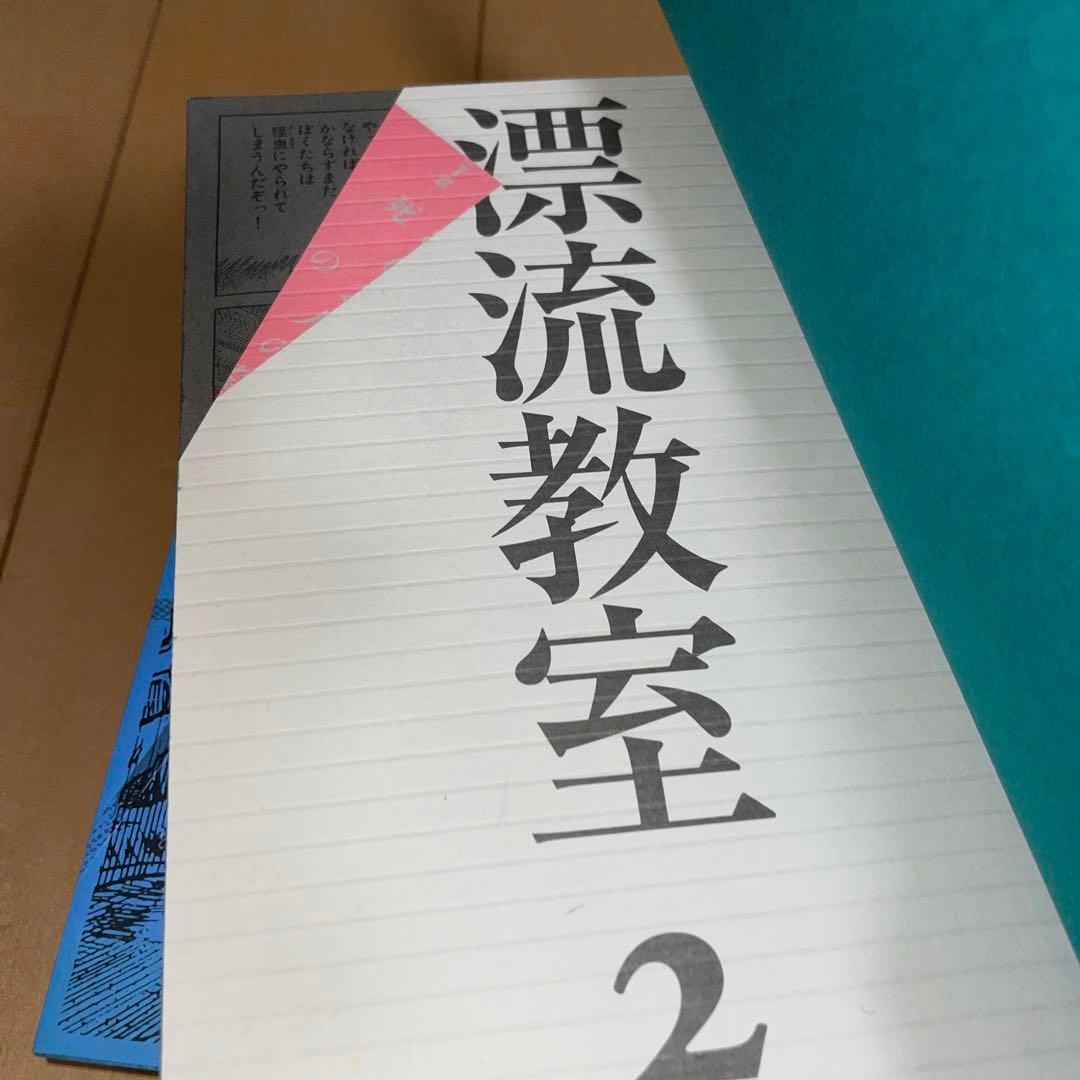 漂流教室
2
なければ
かならずまた
ぼくたちは
怪虫にやられて
しまうんだぞっ！